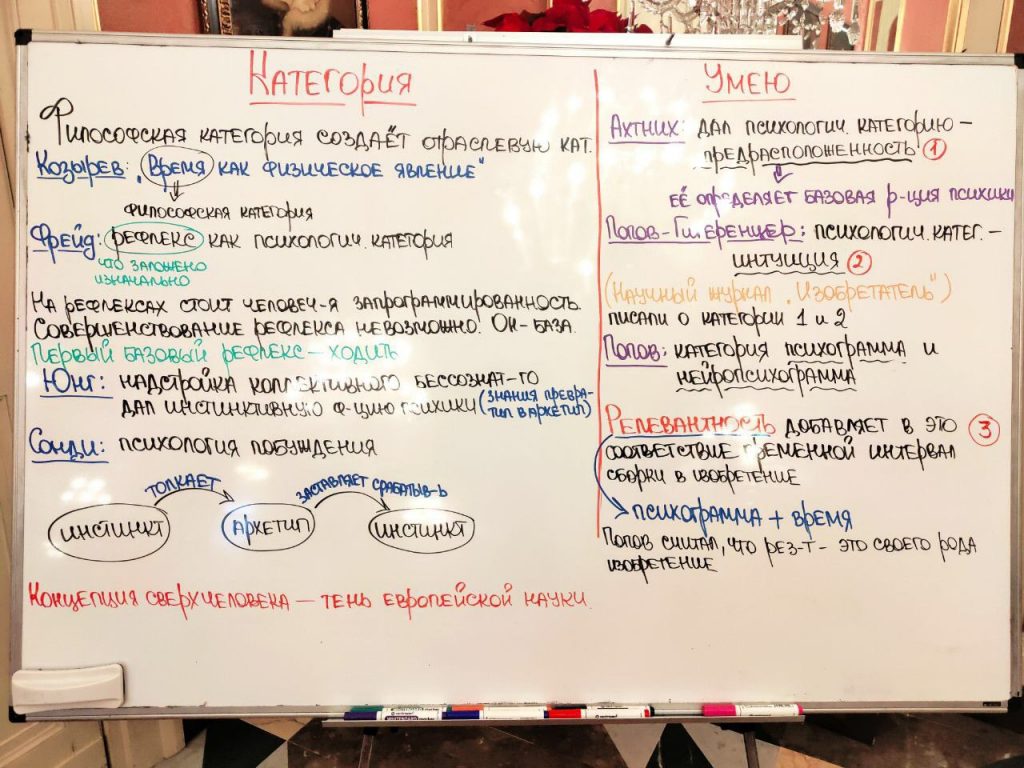 Категория
Философская категория создаёт отраслевую кат.
Козырев: „Время как физическое явление"
философская категория
Фрейд: рефлекс как психологич. категория
что заложено
изначально
На рефлексах стоит человеч-я запрограммированность.
Совершенствование рефлекса невозможно. Он – база.
Первый базовый рефлекс – ходить
Юнг: надстройка коллективного бессознат-го
дал инстинктивную ф-цию психики (знания превра-
тил в архетип)
Сонди: психология побуждения
толкает
заставляет срабатыв-ь
инстинкт
архетип
инстинкт
Концепция сверхчеловека – тень европейской науки.
Умею
Ахтних: дал психологич. категорию –
предрасположенность 1
её определяет базовая р-ция психики
Попов-Гиперенцер: психологич. катег. –
интуиция 2
(Научный журнал „Изобретатель")
писали о категории 1 и 2
Попов: категория психограмма и
нейропсихограмма
Релевантность добавляет в это 3
соответствие временной интервал
сборки в изобретение
психограмма + время
Попов считал, что рез-т – это своего рода
изобретение